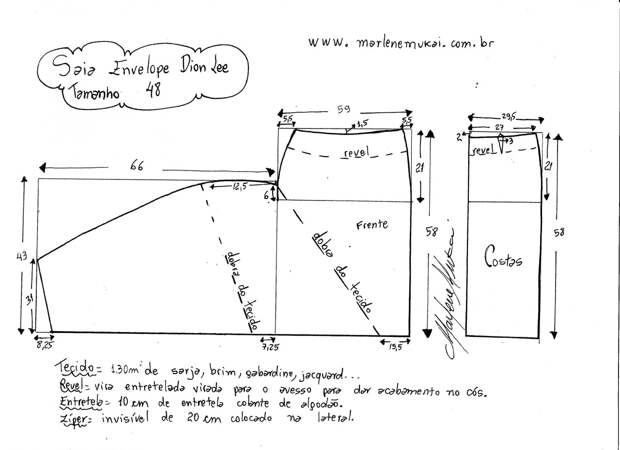 www.marlenemukai.com.br
Saia Envelope Dion Lee
Tamanho 48
59
5,5
1,5
5,5
revel
21
66
12,5
6
43
31
8,25
dobra do tecido
7,25
dobra do tecido
Frente
13,5
58
Marlene Mukai
29,5
27
2
3
revel
21
Costas
58
Tecido= 1.30m de sarja, brim, gabardine, jacquard...
Revel= vira entretelada virada para o avesso para dar acabamento no cós.
Entretela= 10 cm de entretela colante de algodão.
Zíper= invisível de 20 cm colocado na lateral.